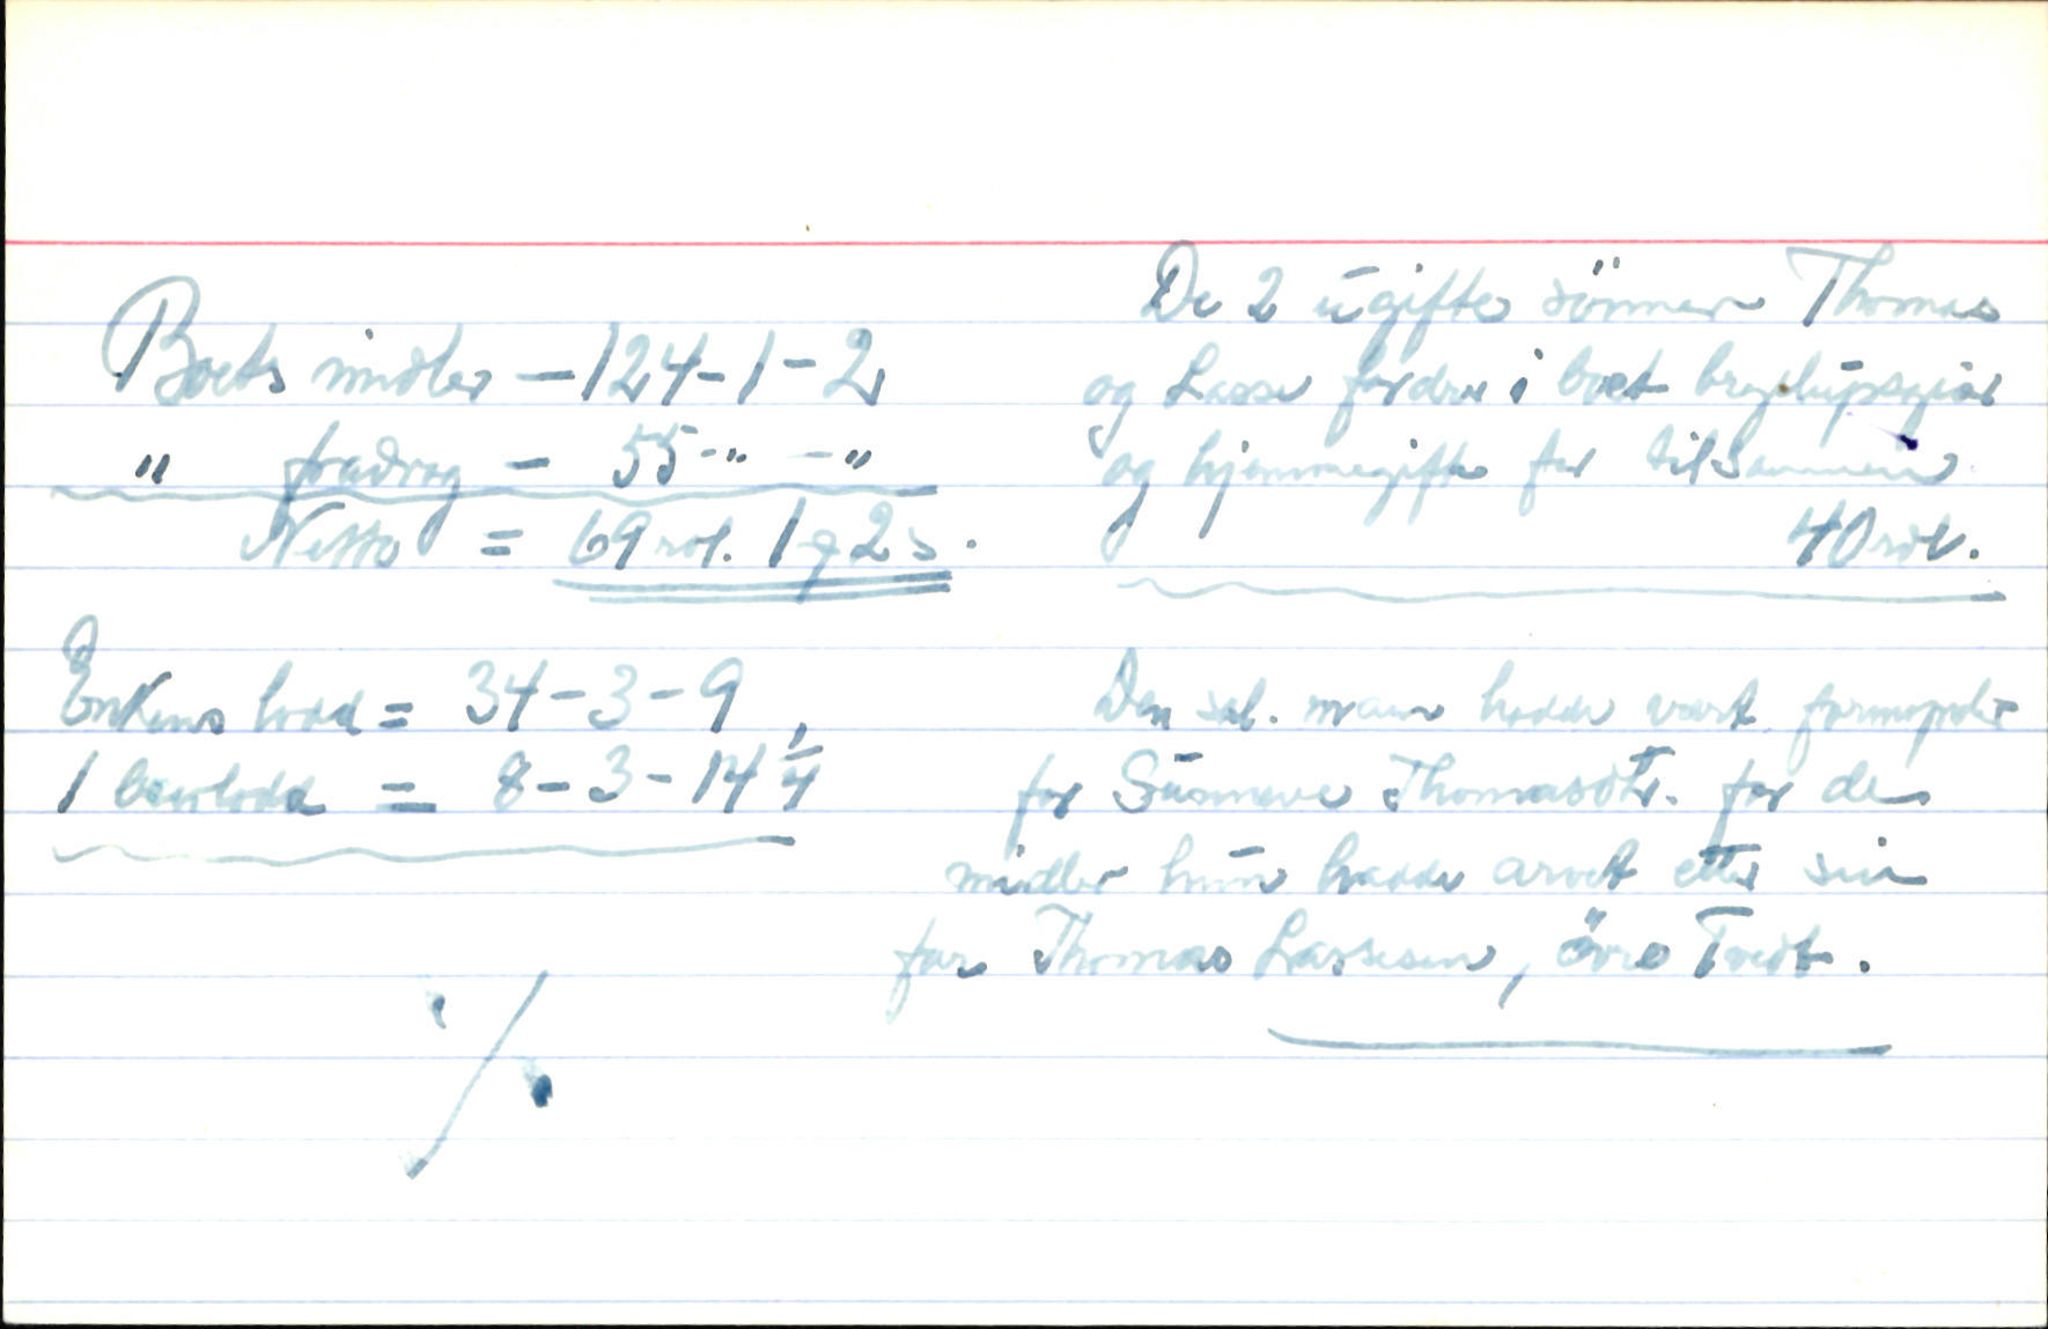 Boets midler - 124 - 1 - 2
" fradrag - 55 - " - "
Netto = 69 rdl. 1 q 2 s.
Enkens lodd = 34 - 3 - 9
1 broderlodd = 8 - 3 - 14 1/4
De 2 ugifte sönner Thomas
og Lasse fordrer i boet bryllupsgiær
og hjemmegifte for tilsammen
40 rdl.
Den sal. mann hadde vært formynder
for Sünneve Thomasdtr. for de
midler hun hadde arvet etter sin
far Thomas Lassesen, övre Tvedt.
./.